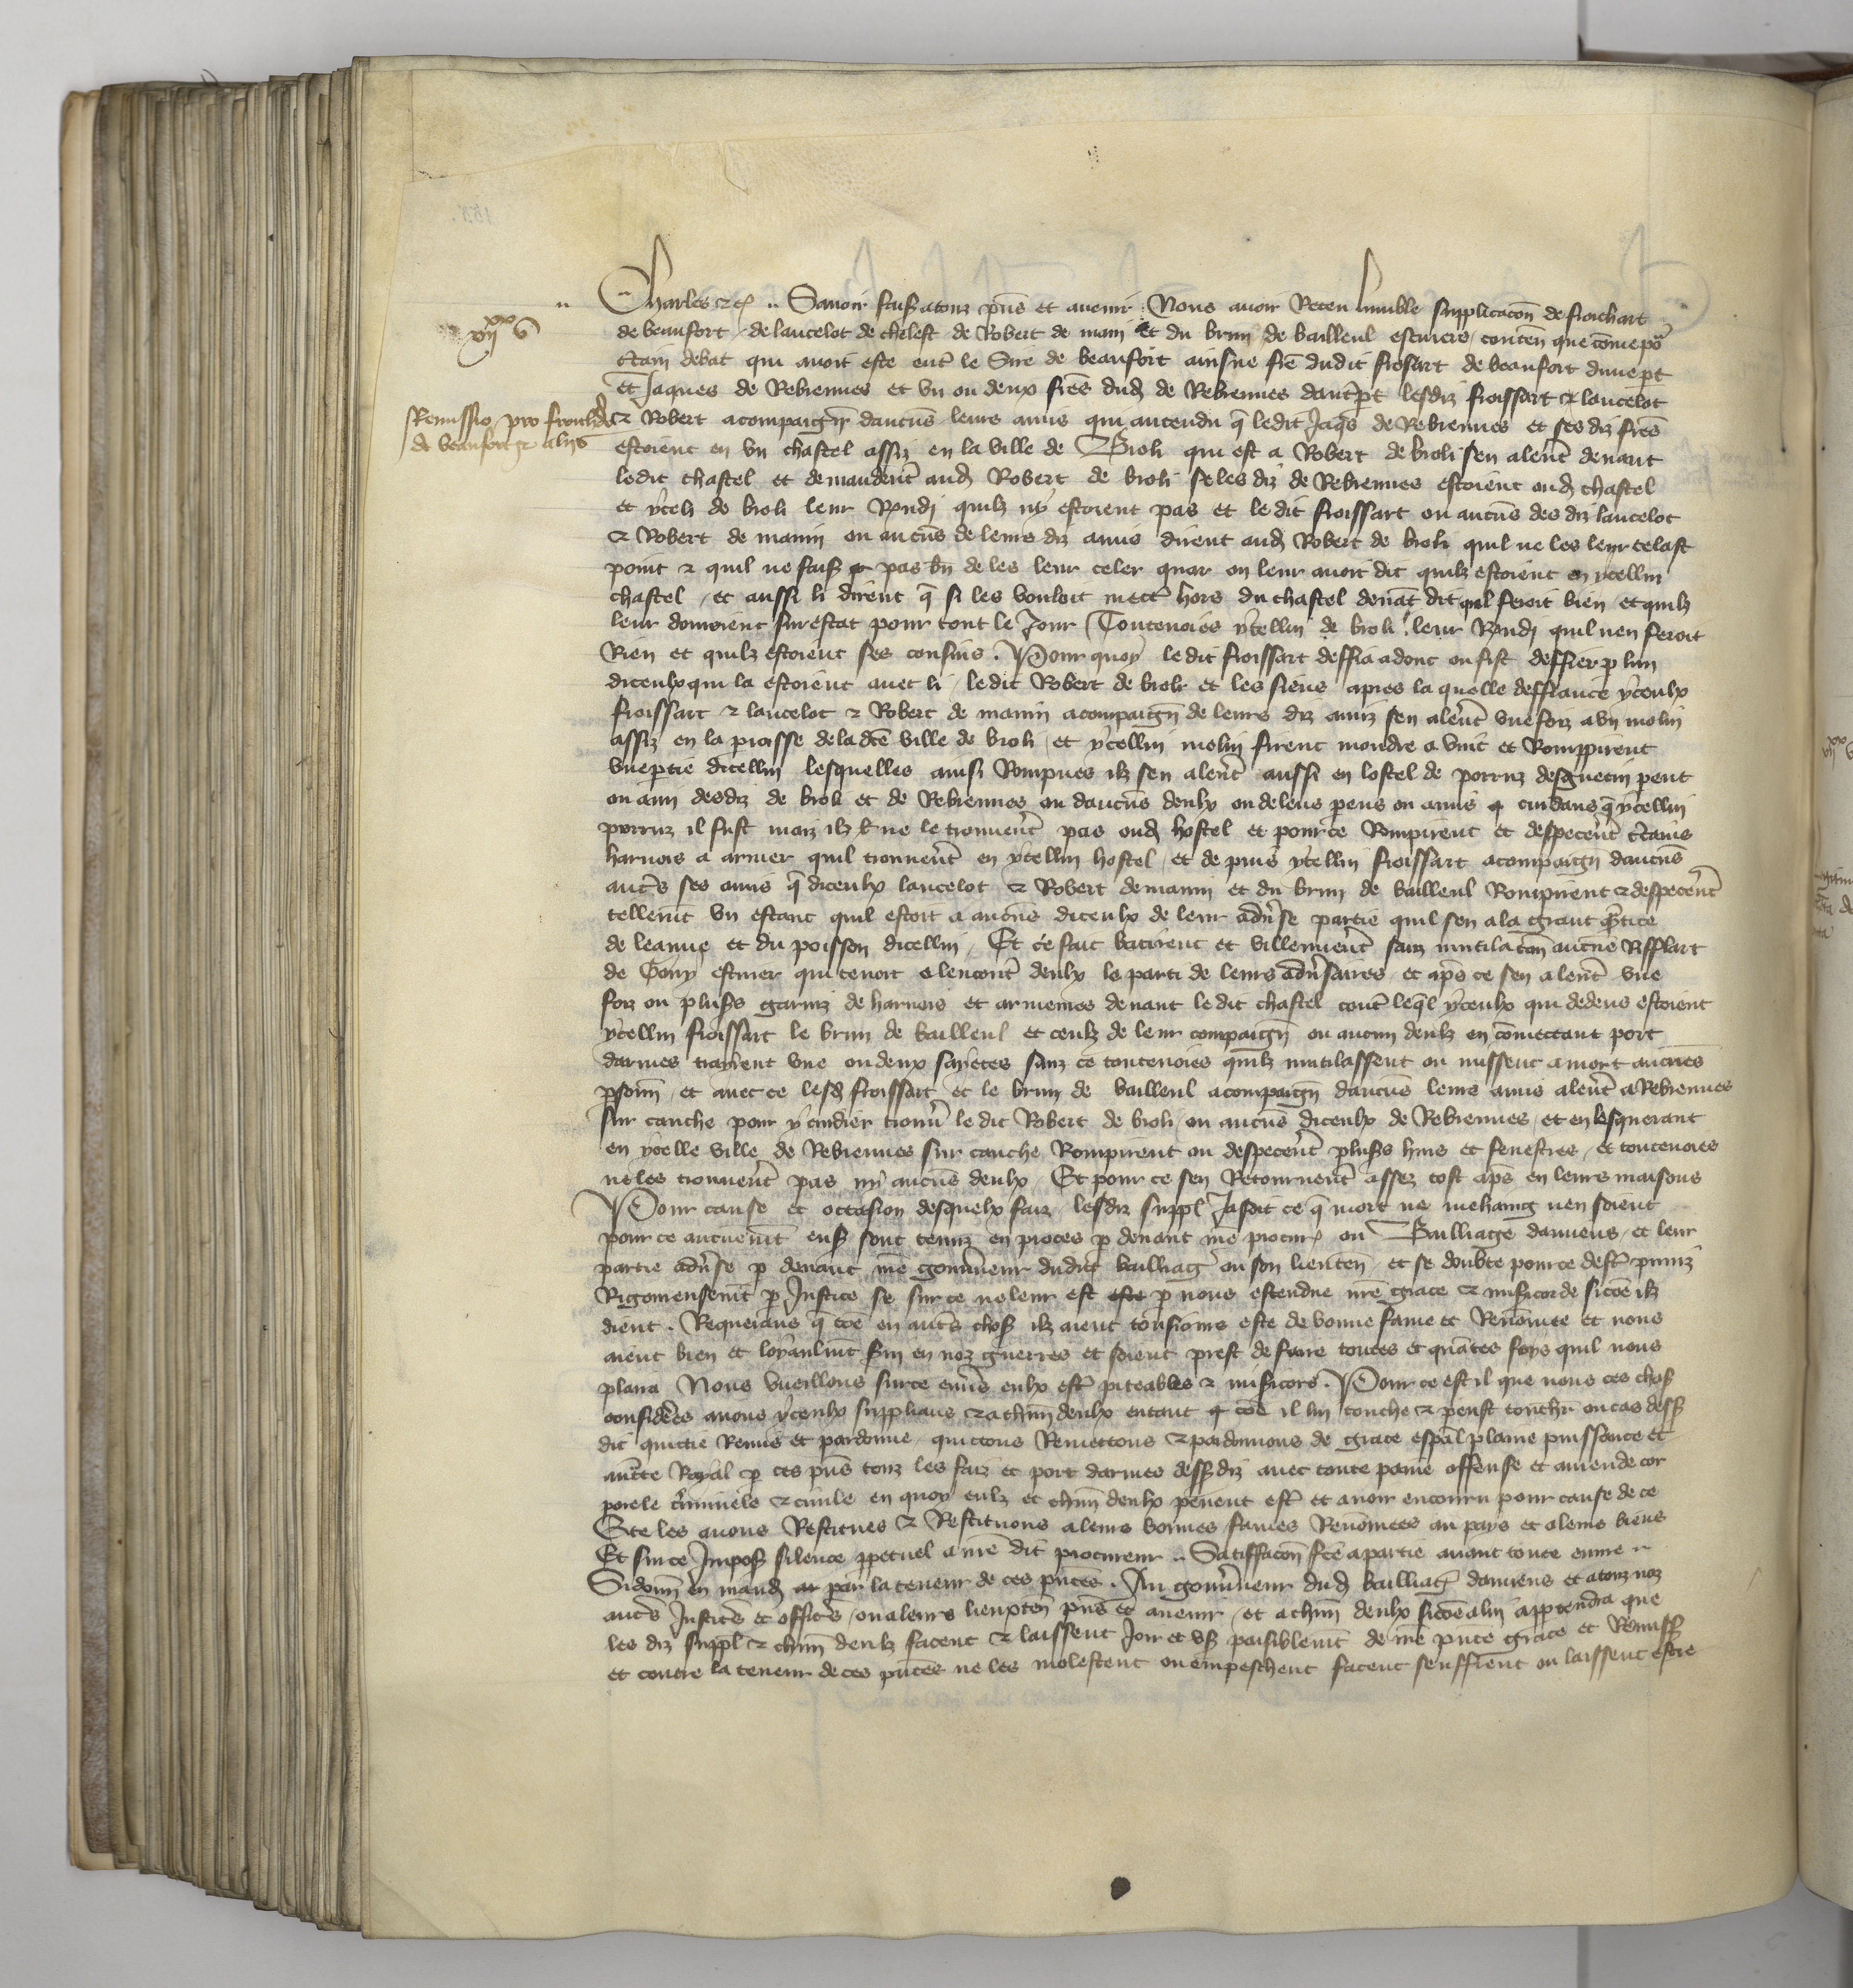 Charles etc .. Savoir faisz a touz pñs et avenir Nous avoir Receu humble supplicacoñ de froichart
vii xx v
de beaufort de lancelot de de Robert de main et du brun de bailleul escuiers contenã que cõme põ
ctain debat qui avoit este entẽ le Sire de beaufort ainsne fre dudit froisart de beaufort dune pt
et Jaques de Rebreuves et un ou deux fres dud de Rebreuves dautẽ pt lesdiz froissart & lancelot
Remissio pro froichart
de beaufort & alijs
& Robert acompaigñ daucũs leurs amis qui entendu q̃ ledit Jaq̃s de Rebreuves et ses diz fres
estoient en un chastel assiz en la ville de Broli qui est a Robert de broli sen alerẽt devant
ledit chastel et demanderẽt aud Robert de broli se les diz de Rebreuves estoient oud chastel
et yceli de broli leur Rndi quilz ny estoient pas et le dit froissart ou aucũs des diz lancelot
& Robert de manin ou aucũs de leurs diz amis dirent aud Robert de broli quil ne les leur celast
point & quil ne faisz pas bñ de les leur celer quar on leur avoit dit quilz estoient en ycellui
chastel et aussi li dirent q̃ si les vouloit mectẽ hors du chastel devãt dit quil feroit bien et quilz
leur donroient surestat pour tout le Jour Toutevoies ycellui de broli leur Rndi quil nen feroit
Rien et quilz estoient ses cousins . Pour quoy le dit froissart deffia adonc ou fist deffier p lun
diceulx qui la estoient avec li ledit Robert de broli et les siens apres la quelle deffiance yceulx
froissart & lancelot & Robert de manin acompaigñ de leurs diz amiz sen alerẽt une foiz a un molin
assiz en la proisse de la dcẽ ville de broli et ycellui molin firent moudre a vuit et Romppirent
une ptie dicellui lesquelles ainsi Rompues ilz sen alerẽt aussi en lostel de porruz desguetin pent
ou ami desdiz de broli et de Rebreuves ou daucũs deulx ou de leurs pens ou amis cuidans q̃ ycellui
porruz il fust maiz ilz ne le trouverẽt pas oud hostel et pour ce Rompirent et despecerẽt ctains
harnois a armer quil trouverẽt en ycellui hostel et depuis ycellui froissart acompaigñ daucũs
autẽs ses amis q̃ diceulx lancelot & Robert de manin et du brun de bailleul Rompirent & despecerẽt
tellemt un estanc quil estoit a aucũs diceulx de leur adṽse partie quil sen ala grant qtite
de leaue et du poisson dicellui Et ce fait batirent et villenerẽt sanz mutilacoñ aucune Rifflart
de Cony escuier qui tenoit a lencontẽ deulx le parti de leurs adṽsaires et aps ce sen alerẽt une
foiz ou plusẽs garniz de harnois et armeures devant le dit chastel contẽ leq̃l yceulx qui dedens estoient
ycellui froissart le brun de bailleul et ceulz de leur compaigñ ou aucun deulz en cõmectant port
darmes trairent une ou deux sayetes sanz ce toutevoies quilz mutilassent ou missent a mort aucunes
psoñ et avec ce lesd froissart et le brun de bailleul acompaigñ daucũs leurs amis alerẽt a Rebreuves
sur canche pour y cuidier trouṽ le dit Robert de broli ou aucũs diceulx de Rebreuves et en les querant
en ycelle ville de Rebreuves sur canche Rompirent ou despecerẽt plusẽs huis et fenestres et toutevoies
ne les trouverẽt pas ny aucũs deulx Et pour ce sen Retournerẽt assez tost aps en leurs maisons
Pour cause et occasion desquelx faiz lesdiz suppl Jasoit ce q̃ mort ne mehaing nen soient
pour ce aucunemt ensz sont tenuz en proces p devant nrẽ procurẽ ou Bailliage damiens et leur
partie adṽse p devant nrẽ gouṽneur dudit bailliag ou son lieuten et se doubte pour ce destẽ puniz
Rigoreusemt p Justice se sur ce ne leur est p nous estendue nrẽ grace & misicorde si cõe ilz
dient . Requerans q̃ cõe en autẽs chosz ilz aient tousiours este de bonne fame et Renõmee et nous
aient bien et loyaulmt svi en noz guerres et soient prest de faire toutes et quãtes foys quil nous
plaira Nous vueillons sur ce enṽs eulx estẽ piteables & misicors . Pour ce est il que nous ces chosz
considẽes avons yceulx supplians & a chũn deulx entant cõe il lui touche & peust touchẽ ou cas dessz
dit quictie Remis et pardonne quictons Remectons & pardonnons de grace espal plaine puissance et
aucte Royal p ces pñs touz les faiz et port darmes dessz diz avec toute paine offense et amende cor
porele criminele & civile en quoy eulz et chũn deulx pevent estẽ et avoir encouru pour cause de ce
Et les avons Restitues & Restituons a leurs bonnes fames Renõmees au pays et a leurs biens
Et sur ce Imposz silence ppetuel a nrẽ dit procureur .. Satiffacoñ fcẽ a partie avant toute euvre ..
Si doñ en mand par la teneur de ces pñtes . Au gouṽneur dud bailliag damiens et a touz noz
autẽs Justicẽs et officẽs ou a leurs lieuxteñ pñs et avenir et a chũn deulx si cõe a lui appendra que
les diz suppl & chũn deulz facent & laissent Joir et usz paisiblemt de nrẽ pñte grace et Remissz
et contre la teneur de ces pñtes ne les molestent ou empeschent facent seuffrent ou laissent estre